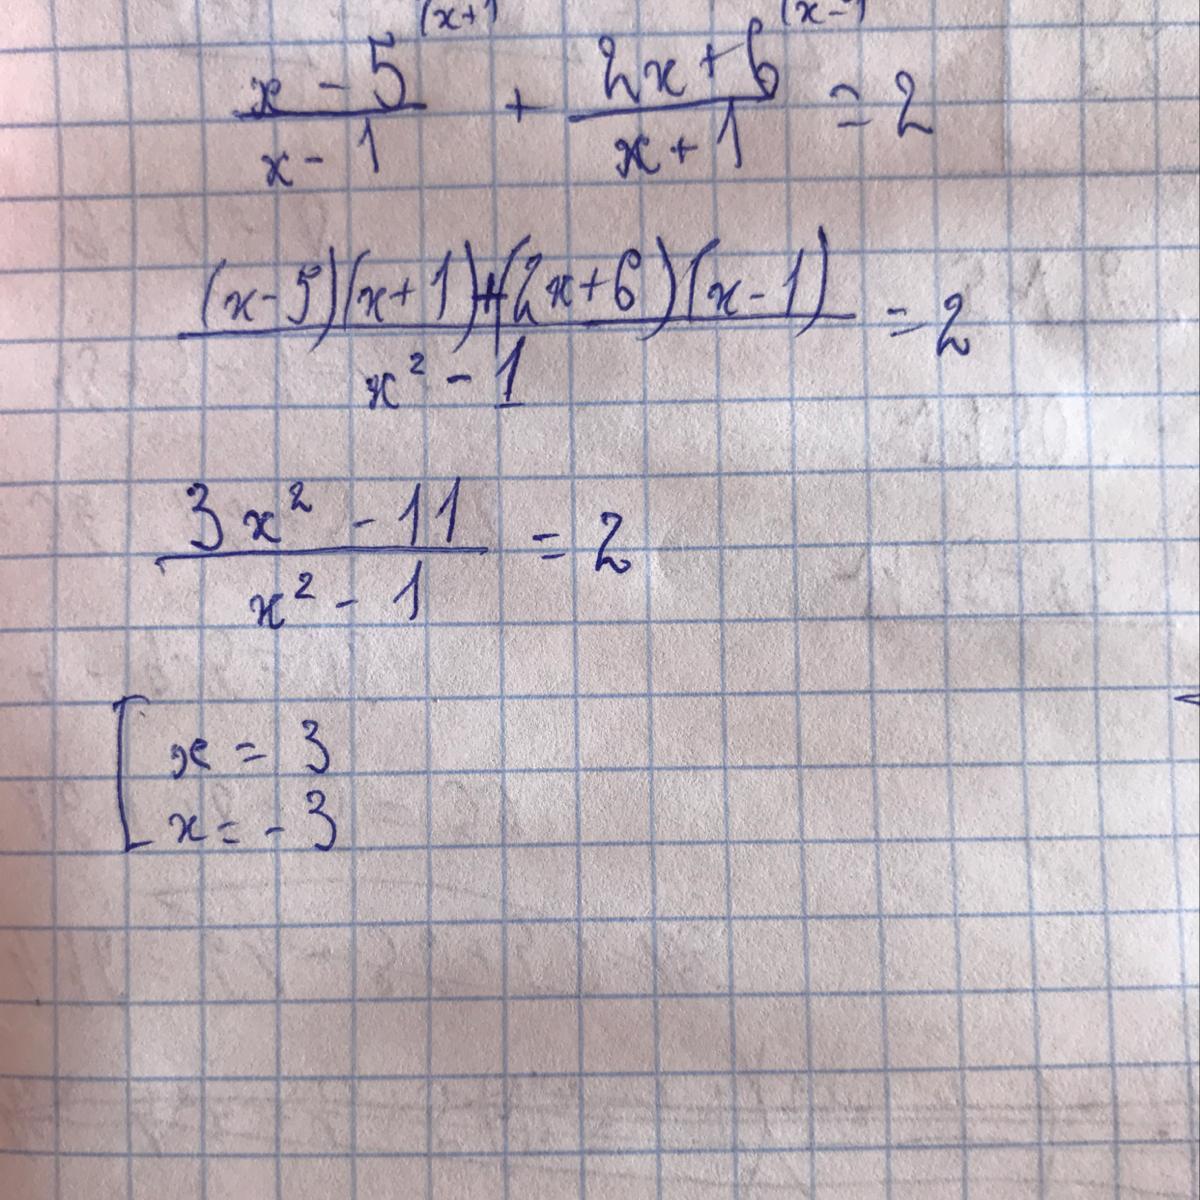 (x+1 (x-1
x - 5 / x - 1 + 2x + 6 / x + 1 = 2
(x-5)(x+1)+(2x+6)(x-1) / x² - 1 = 2
3x² - 11 / x² - 1 = 2
[ x = 3
x = - 3